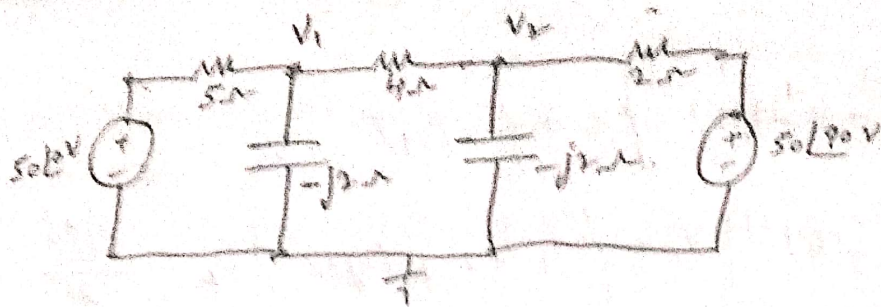 V₁ V₂
5Ω 4Ω 2Ω
50∠0 V + - -j2Ω -j2Ω + - 50∠90 V